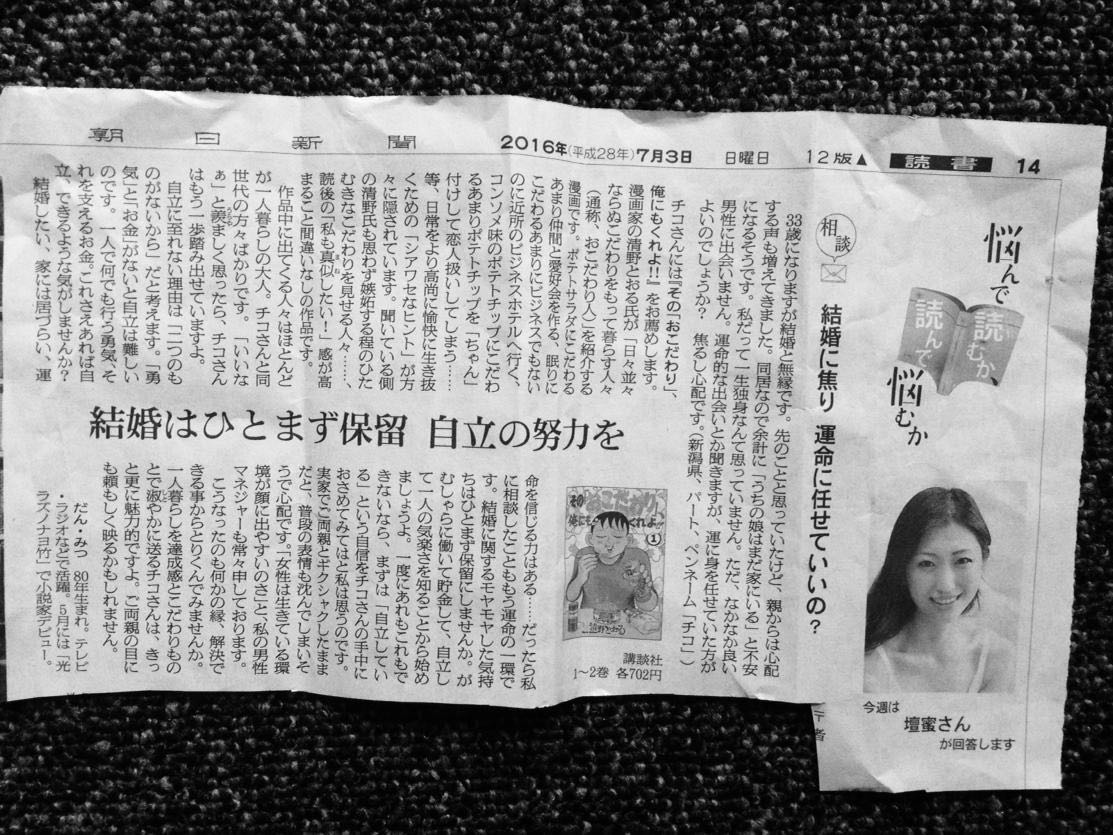 朝日新聞
2016年(平成28年)7月3日 日曜日 12版▲ 読書 14
悩んで
読むか、
読んで
悩むか
相談
結婚に焦り 運命に任せていいの?
33歳になりますが結婚と無縁です。先のことと思っていたけど、親からは心配
する声も増えてきました。同居なので余計に「うちの娘はまだ家にいる」と不安
になるそうです。私だって一生独身なんて思っていません。ただ、なかなか良い
男性に出会いません。運命的な出会いとか聞きますが、運に身を任せていた方が
よいのでしょうか? 焦るし心配です。(新潟県、パート、ペンネーム「チコ」)
チコさんには『その「おこだわり」、
俺にもくれよ!!』をお薦めします。
漫画家の清野とおる氏が「日々並々
ならぬこだわりをもって暮らす人々
(通称、おこだわり人)」を紹介する
漫画です。ポテトサラダにこだわる
あまり仲間と愛好会を作る、眠りに
こだわるあまりにビジネスでもない
のに近所のビジネスホテルへ行く、
コンソメ味のポテトチップにこだわ
るあまりポテトチップを「ちゃん」
付けして恋人扱いしてしまう……
等、日常をより高尚に愉快に生き抜
くための「シアワセなヒント」が方
々に隠されています。聞いている側
の清野氏も思わず嫉妬する程のひた
むきなこだわりを見せる人々……、
読後の「私も真似したい!」感が高
まること間違いなしの作品です。
作品中に出てくる人々はほとんど
が一人暮らしの大人。チコさんと同
世代の方々ばかりです。「いいな
ぁ」と羨ましく思ったら、チコさん
はもう一歩踏み出せていますよ。
自立に至れない理由は「二つのも
のがないから」だと考えます。「勇
気」と「お金」がないと自立は難しい
のです。一人で何でも行う勇気、そ
れを支えるお金。これさえあれば自
立、できるような気がしませんか?
結婚したい、家には居づらい、運
結婚はひとまず保留 自立の努力を
命を信じる力はある……だったら私
に相談したことももう運命の一環で
す。結婚に関するモヤモヤした気持
ちはひとまず保留にしませんか。が
むしゃらに働いて貯金して、自立し
て一人の気楽さを知ることから始め
ましょうよ。一度にあれもこれもで
きないなら、まずは「自立してい
る」という自信をチコさんの手中に
おさめてみてはと私は思うのです。
実家でご両親とギクシャクしたまま
だと、普段の表情も沈んでしまいそ
うで心配です。「女性は生きている環
境が顔に出やすいのさ」と私の男性
マネジャーも常々申しております。
こうなったのも何かの縁、解決で
きる事からとりくんでみませんか。
一人暮らしを達成感とこだわりのも
とで淑やかに送るチコさんは、きっ
と更に魅力的ですよ。ご両親の目に
も頼もしく映るかもしれません。
だん・みつ 80年生まれ。テレビ
・ラジオなどで活躍。5月には「光
ラズノナヨ竹」で小説家デビュー。
その
おこだわり、
俺にも
くれよ!!
1
清野とおる
講談社
1~2巻 各702円
今週は
壇蜜さん
が回答します
者